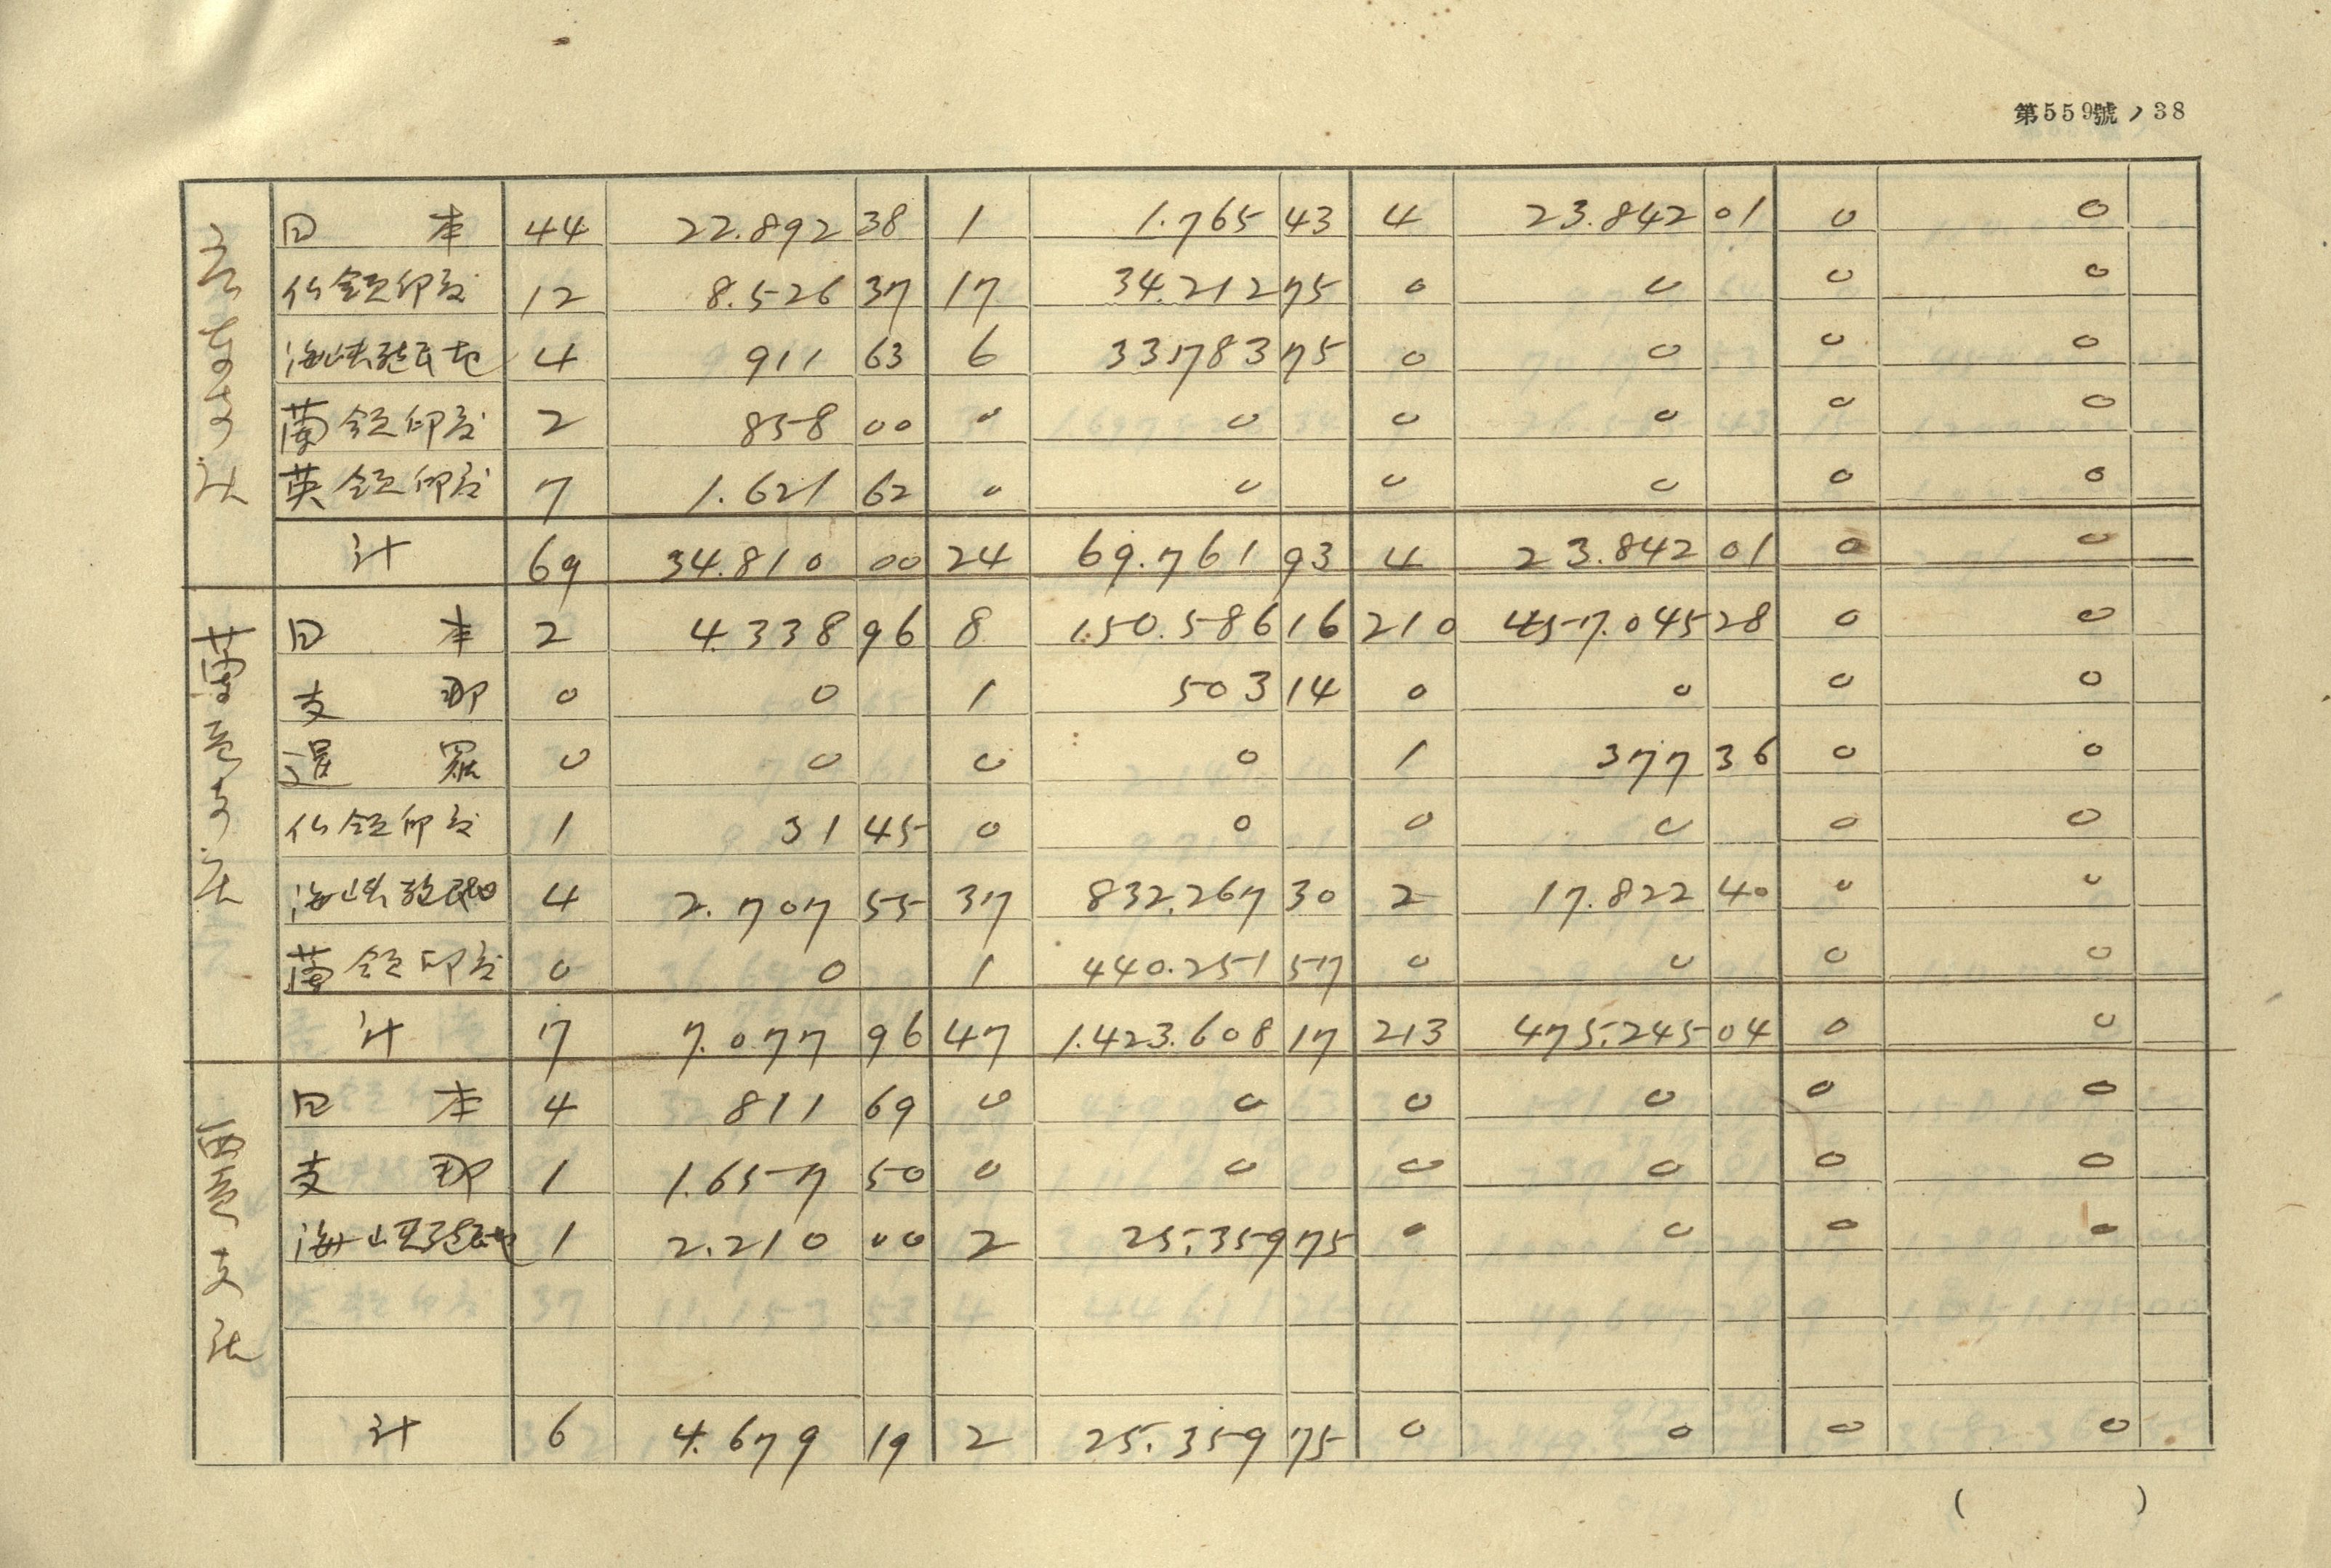 第559號ノ38
日本 44 22.892 38 1 1.765 43 4 23.842 01 0 0
仏領印度 12 8.526 37 17 34.212 75 0 0 0 0
海峡殖民地 4 911 63 6 33.783 75 0 0 0 0
蘭領印度 2 858 00 0 0 0 0 0 0
英領印度 7 1.621 62 0 0 0 0 0 0
計 69 34.810 00 24 69.761 93 4 23.842 01 0 0
日本 2 4.338 96 8 150.586 16 210 457.045 28 0 0
支那 0 0 1 503 14 0 0 0 0
暹羅 0 0 0 0 1 377 36 0 0
仏領印度 1 31 45 0 0 0 0 0 0
海峡殖民地 4 2.707 55 37 832.267 30 2 17.822 40 0 0
蘭領印度 0 0 1 440.251 57 0 0 0 0
計 7 7.077 96 47 1.423.608 17 213 475.245 04 0 0
日本 4 811 69 0 0 0 0 0 0
支那 1 1.657 50 0 0 0 0 0 0
海峡殖民地 1 2.210 00 2 25.359 75 0 0 0 0
計 6 4.679 19 2 25.359 75 0 0 0 0
( )